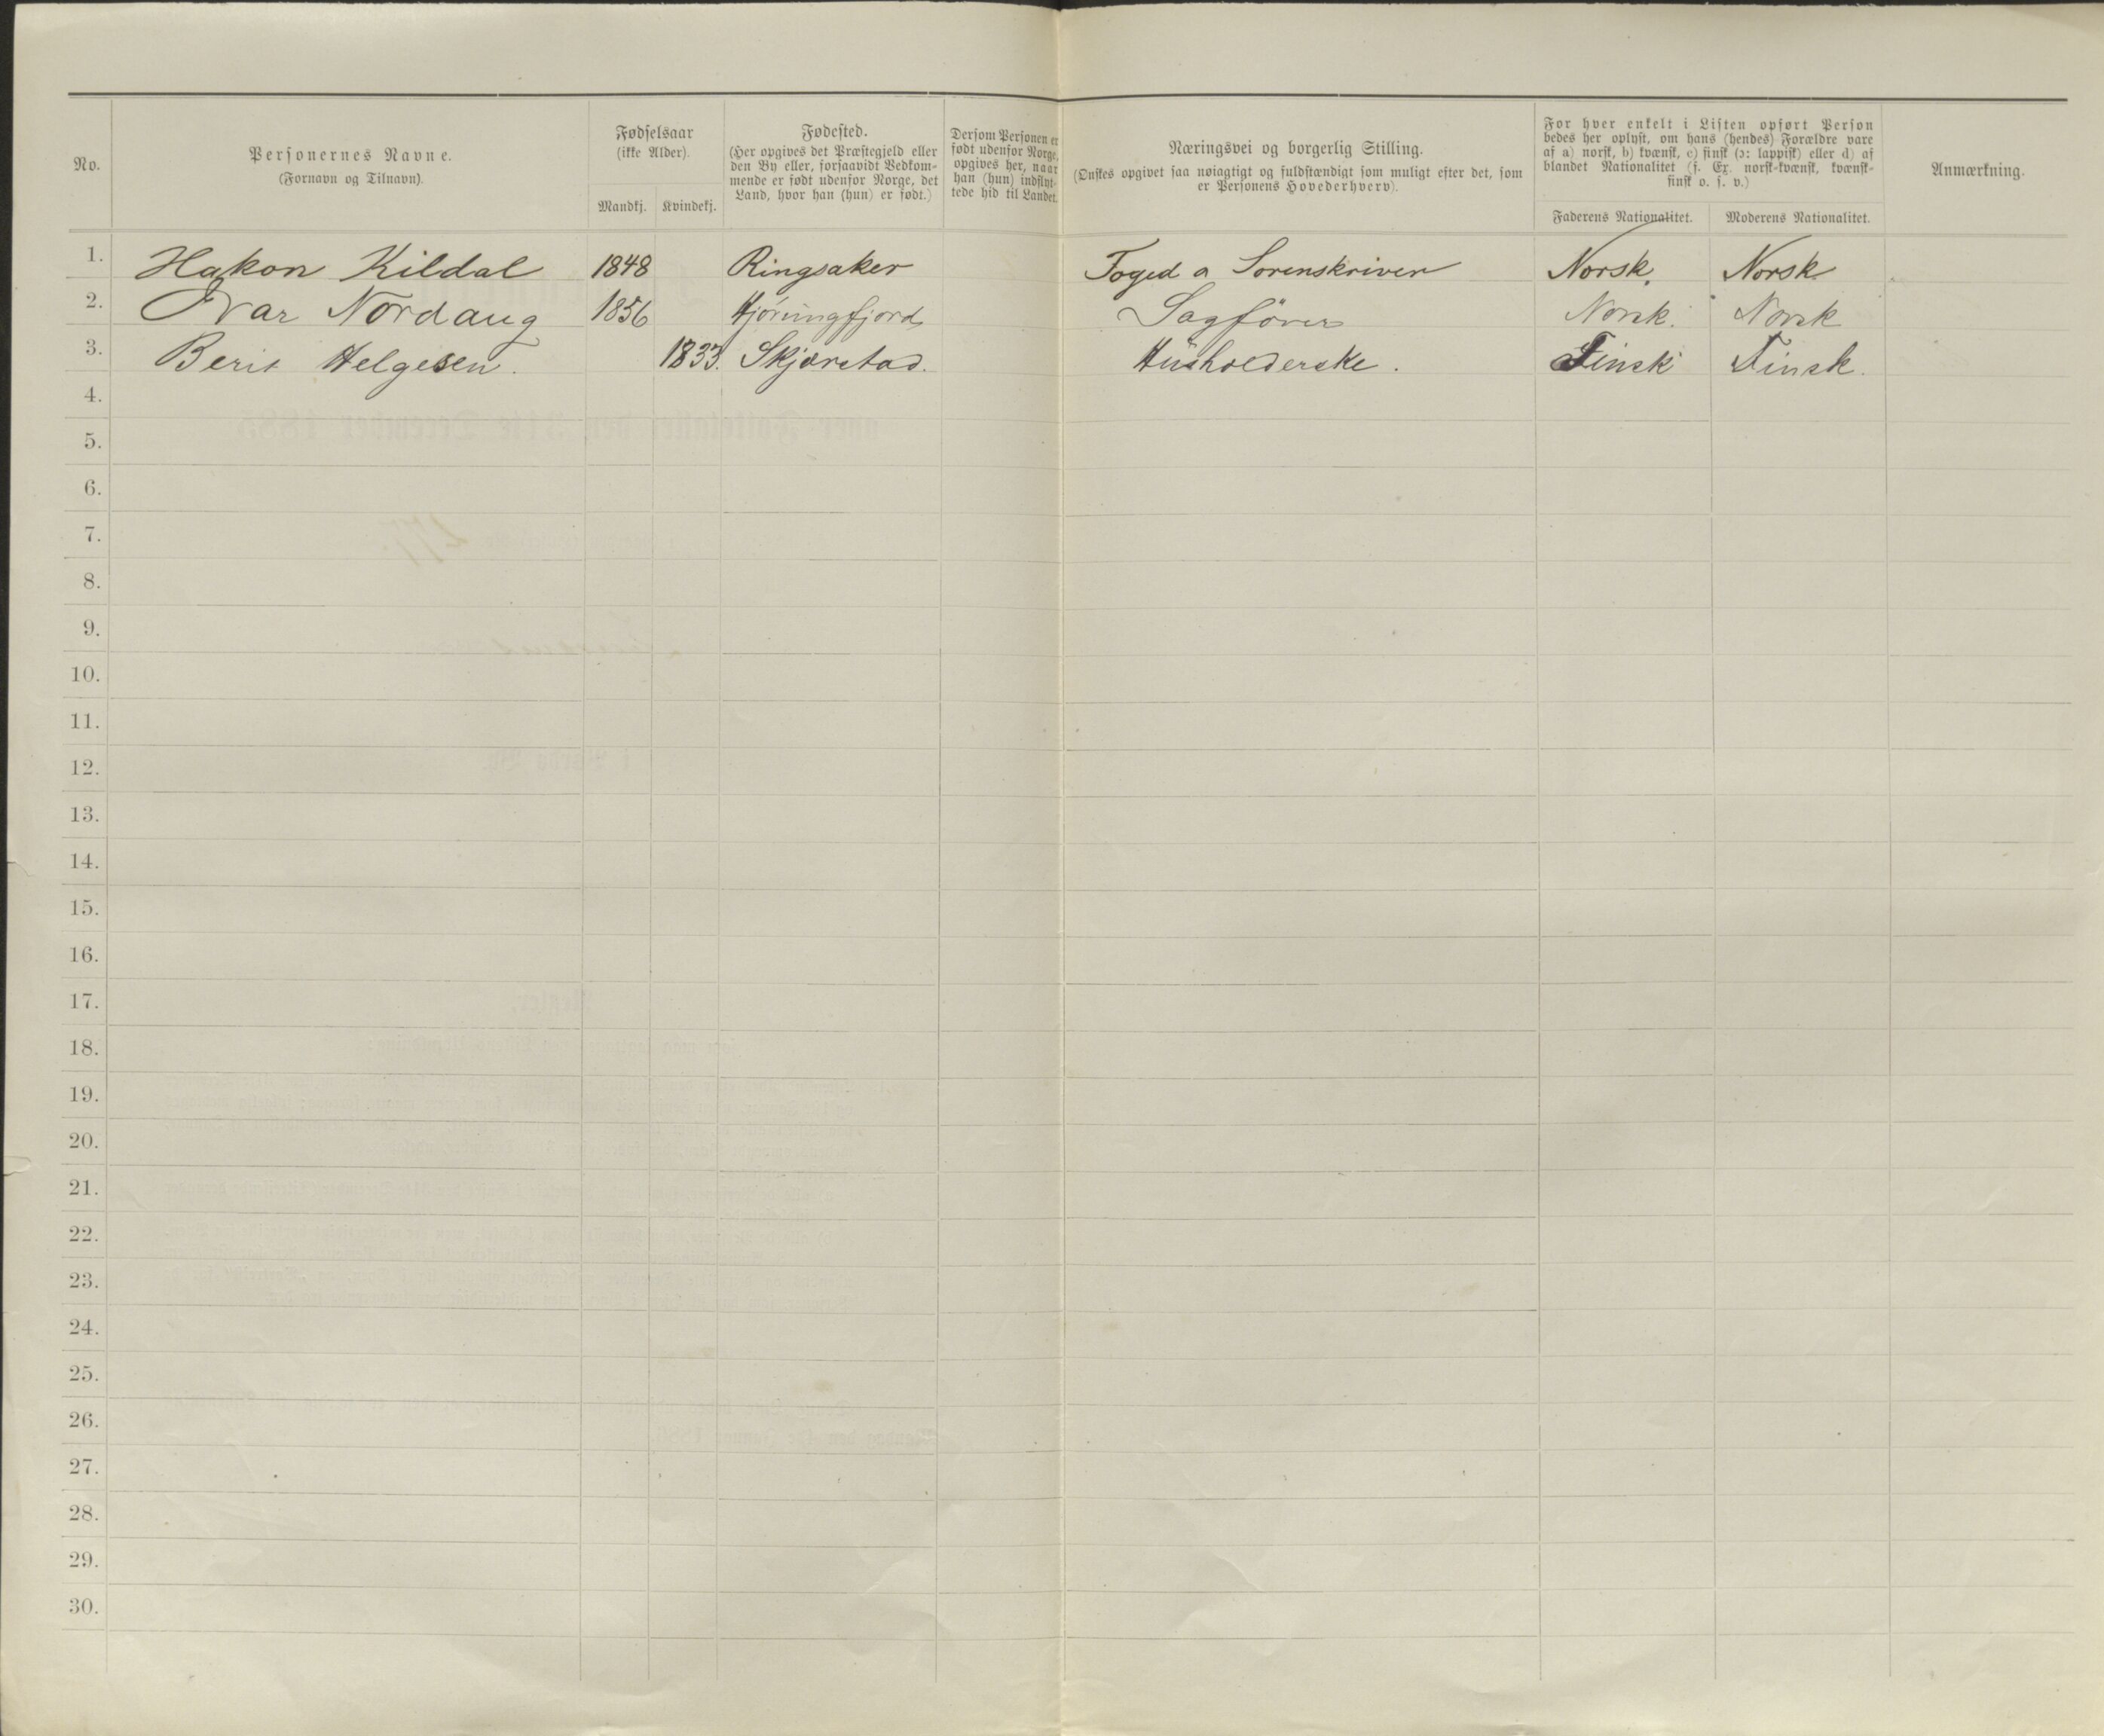 No.
Personernes Navne.
(Fornavn og Tilnavn).
Fødselsaar
(ikke Alder).
Mandkj. Kvindekj.
Fødested.
(Her opgives det Præstegjeld eller
den By eller, forsaavidt Vedkom-
mende er født udenfor Norge, det
Land, hvor han (hun) er født.)
Dersom Personen er
født udenfor Norge,
opgives her, naar
han (hun) indflyt-
tede hid til Landet.
Næringsvei og borgerlig Stilling.
(Ønskes opgivet saa nøiagtigt og fuldstændigt som muligt efter det, som
er Personens Hovederhverv).
For hver enkelt i Listen opført Person
bedes her oplyst, om hans (hendes) Forældre vare
af a) norsk, b) kvænsk, c) finsk (ɔ: lappisk) eller d) af
blandet Nationalitet (f. Ex. norsk-kvænsk, kvænsk-
finsk o. s. v.)
Faderens Nationalitet. Moderens Nationalitet.
Anmærkning.
1. Hakon Kildal 1848 Ringsaker Foged o Sorenskriver Norsk. Norsk
2. Ivar Nordaug 1856 Hjørungfjord Sagfører Norsk. Norsk
3. Berit Helgesen. 1833. Skjærstad. Husholderske. Finsk Finsk.
4.
5.
6.
7.
8.
9.
10.
11.
12.
13.
14.
15.
16.
17.
18.
19.
20.
21.
22.
23.
24.
25.
26.
27.
28.
29.
30.